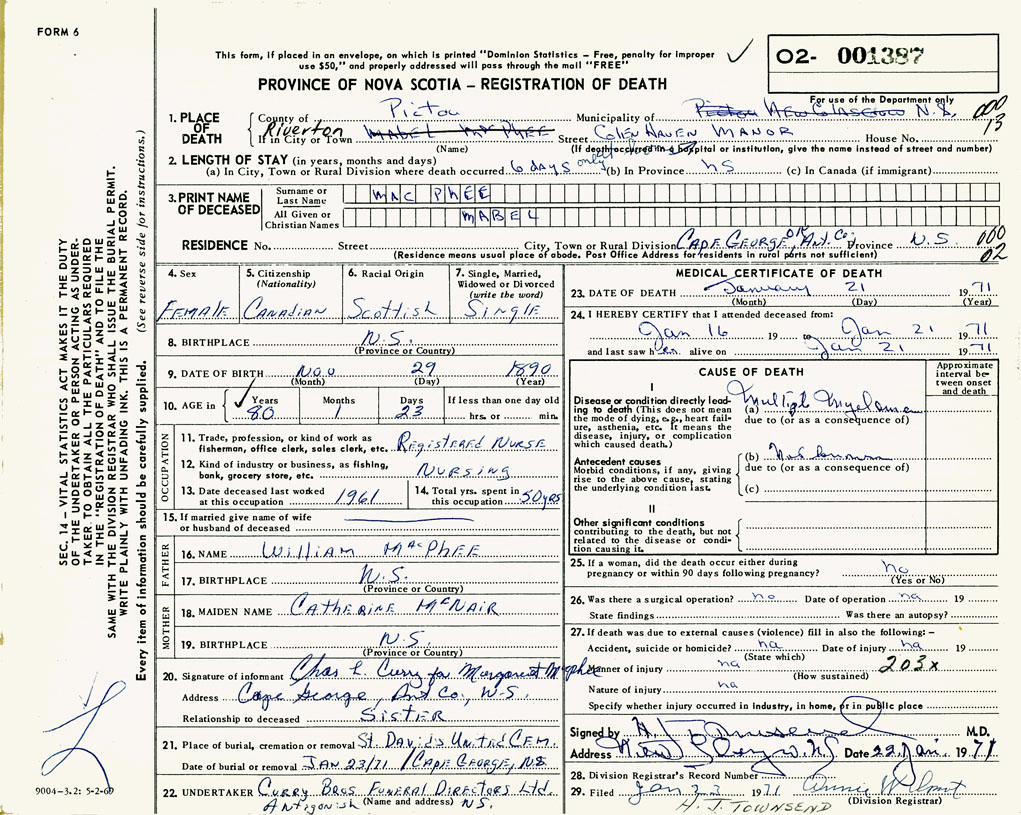 FORM 6
This form, if placed in an envelope, on which is printed "Dominion Statistics – Free, penalty for improper
use $50," and properly addressed will pass through the mail "FREE"
O2- 001387
PROVINCE OF NOVA SCOTIA – REGISTRATION OF DEATH
For use of the Department only
1. PLACE OF DEATH
County of Pictou Municipality of Pictou New Glasgow N.S. 000
If in City or Town Riverton Mabel MacPhee Street Glen Haven Manor House No. 13
(Name) (If death occurred in a hospital or institution, give the name instead of street and number)
2. LENGTH OF STAY (in years, months and days)
(a) In City, Town or Rural Division where death occurred 6 days only (b) In Province NS (c) In Canada (if immigrant)
3. PRINT NAME OF DECEASED
Surname or Last Name MAC PHEE
All Given or Christian Names MABEL
RESIDENCE No. Street City, Town or Rural Division Cape George, Ant. Co. Province N.S. 000
(Residence means usual place of abode. Post Office Address for residents in rural parts not sufficient) 02
4. Sex
Female
5. Citizenship (Nationality)
Canadian
6. Racial Origin
Scottish
7. Single, Married, Widowed or Divorced (write the word)
Single
8. BIRTHPLACE N.S.
(Province or Country)
9. DATE OF BIRTH Nov 29 1890
(Month) (Day) (Year)
10. AGE in Years Months Days If less than one day old
80 1 23 hrs. or min.
OCCUPATION
11. Trade, profession, or kind of work as
fisherman, office clerk, sales clerk, etc. Registered Nurse
12. Kind of industry or business, as fishing,
bank, grocery store, etc. Nursing
13. Date deceased last worked
at this occupation 1961
14. Total yrs. spent in
this occupation 50 yrs
15. If married give name of wife
or husband of deceased
FATHER
16. NAME William MacPhee
17. BIRTHPLACE N.S.
(Province or Country)
MOTHER
18. MAIDEN NAME Catherine McNair
19. BIRTHPLACE N.S.
(Province or Country)
20. Signature of informant Chas L. Curry for Margaret McPhee
Address Cape George, Ant Co, N.S.
Relationship to deceased Sister
21. Place of burial, cremation or removal St. David's United Cem.
Date of burial or removal Jan 23/71 / Cape George, NS
22. UNDERTAKER Curry Bros Funeral Directors Ltd.
Antigonish (Name and address) NS.
MEDICAL CERTIFICATE OF DEATH
23. DATE OF DEATH January 21 1971
(Month) (Day) (Year)
24. I HEREBY CERTIFY that I attended deceased from:
Jan 16 19 to Jan 21 1971
and last saw her alive on Jan 21 1971
CAUSE OF DEATH
Approximate interval between onset and death
I
Disease or condition directly leading to death (This does not mean the mode of dying, e.g., heart failure, asthenia, etc. It means the disease, injury, or complication which caused death.)
(a) Multipl Myeloma
due to (or as a consequence of)
Antecedent causes
Morbid conditions, if any, giving rise to the above cause, stating the underlying condition last.
(b) Not known
due to (or as a consequence of)
(c)
II
Other significant conditions
contributing to the death, but not related to the disease or condition causing it.
25. If a woman, did the death occur either during
pregnancy or within 90 days following pregnancy? no
(Yes or No)
26. Was there a surgical operation? no Date of operation na 19
State findings Was there an autopsy?
27. If death was due to external causes (violence) fill in also the following: –
Accident, suicide or homicide? na Date of injury na 19
(State which)
Manner of injury na 203x
(How sustained)
Nature of injury na
Specify whether injury occurred in industry, in home, or in public place
Signed by H. J. Townsend M.D.
Address New Glasgow NS Date 22 Jan 1971
28. Division Registrar's Record Number
29. Filed Jan 23 1971 Annie
(Division Registrar)
H. J. TOWNSEND
SEC. 14 – VITAL STATISTICS ACT MAKES IT THE DUTY
OF THE UNDERTAKER OR PERSON ACTING AS UNDER-
TAKER TO OBTAIN ALL THE PARTICULARS REQUIRED
IN THE "REGISTRATION OF DEATH" AND TO FILE THE
SAME WITH THE DIVISION REGISTRAR WHO SHALL ISSUE THE BURIAL PERMIT.
WRITE PLAINLY WITH UNFADING INK. THIS IS A PERMANENT RECORD.
Every item of information should be carefully supplied. (See reverse side for instructions.)
9004-3.2: 5-2-69